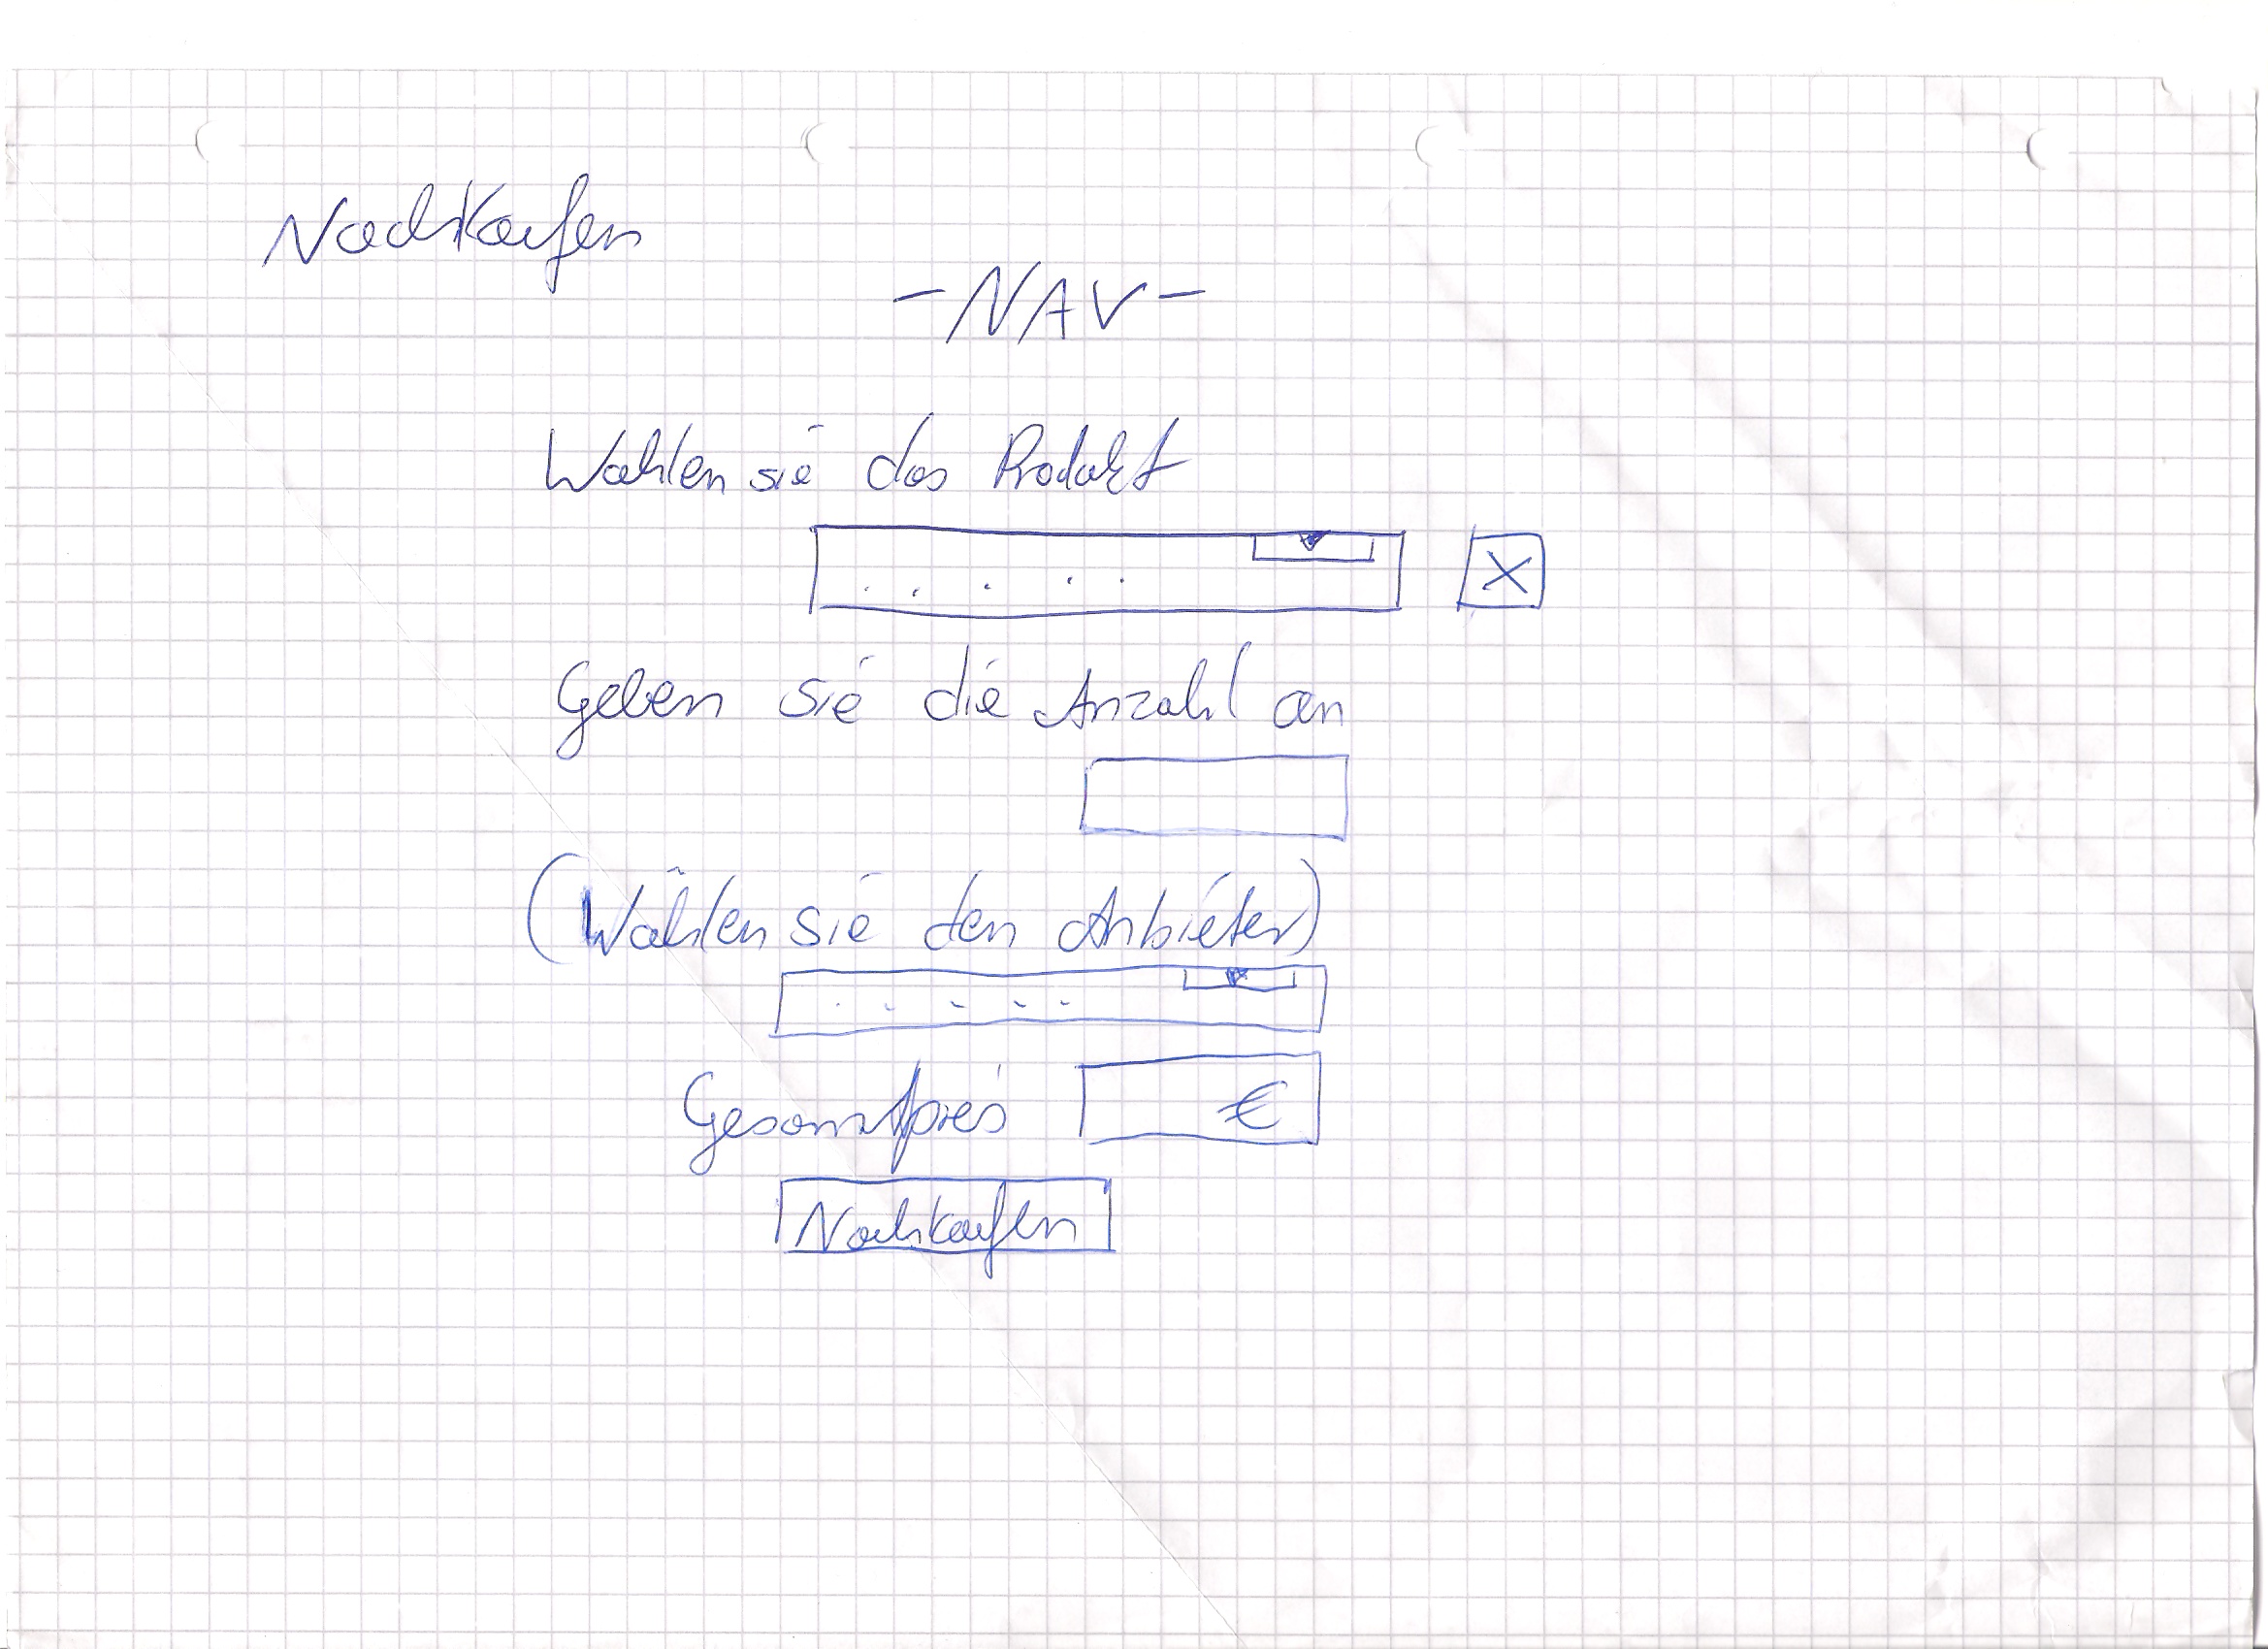 Nachkaufen
- NAV -
Wählen sie das Produkt
X
Geben sie die Anzahl an
(Wählen sie den Anbieter)
Gesamtpreis €
Nachkaufen